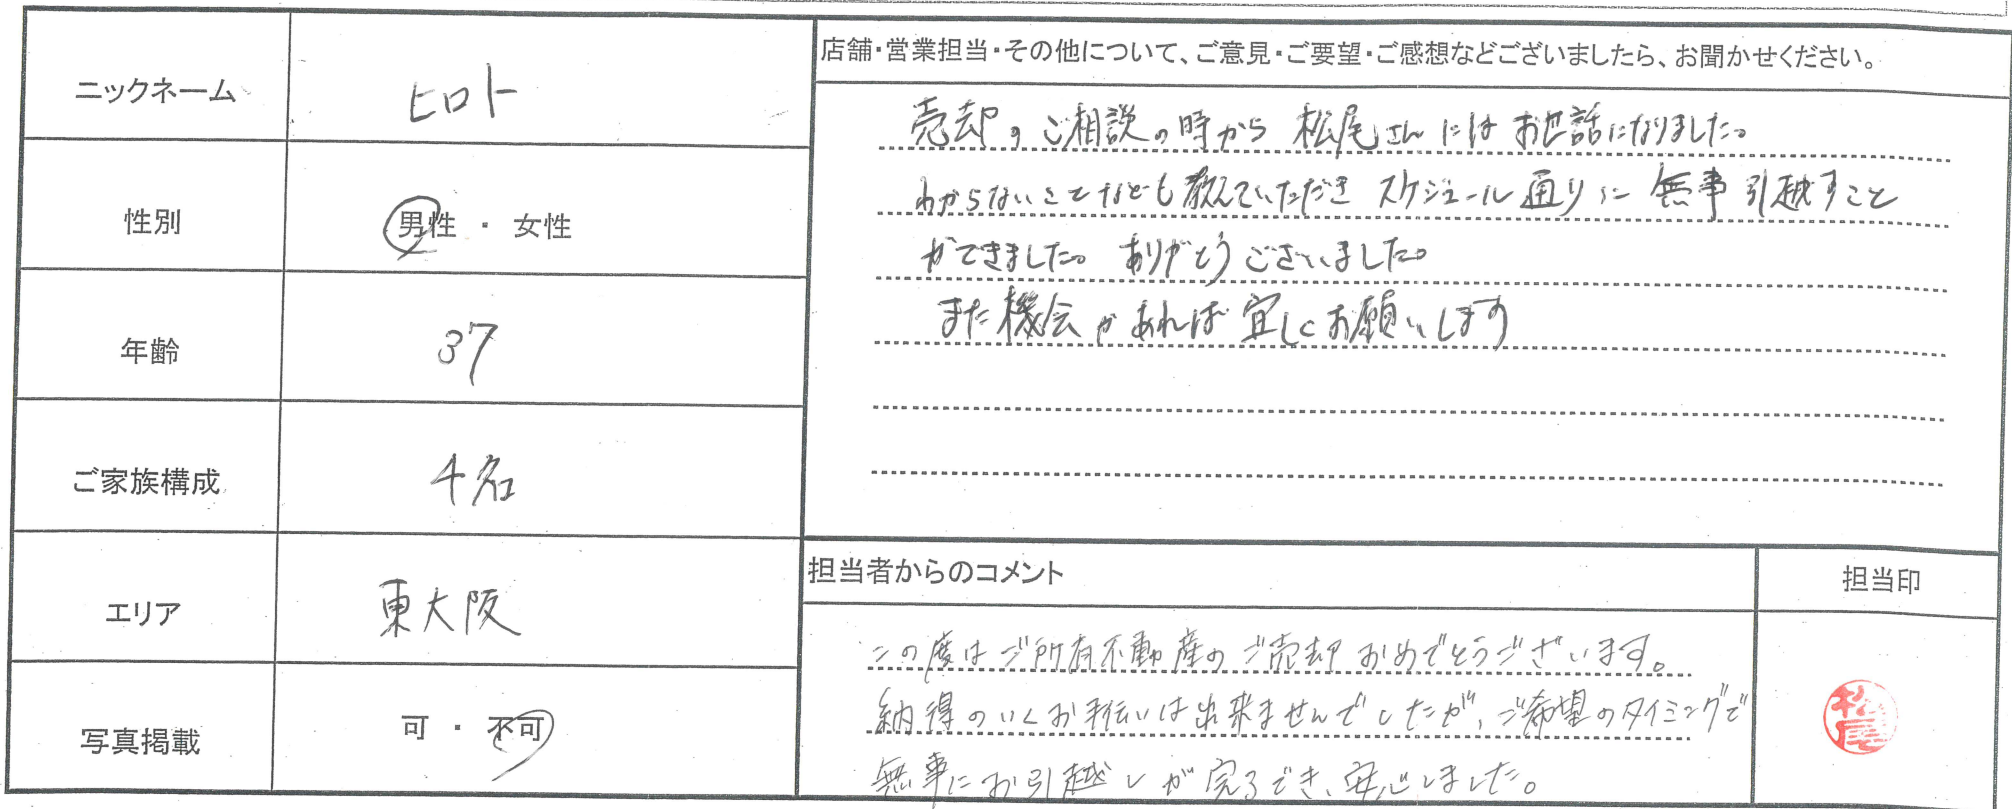 ニックネーム
ヒロト
性別
男性 ・ 女性
年齢
37
ご家族構成
4名
エリア
東大阪
写真掲載
可 ・ 不可
店舗・営業担当・その他について、ご意見・ご要望・ご感想などございましたら、お聞かせください。
売却のご相談の時から 松尾さんにはお世話になりました。
わからないことなども教えていただき スケジュール通りに 無事引越すこと
ができました。ありがとうございました。
また機会があれば宜しくお願いします
担当者からのコメント
この度はご所有不動産のご売却おめでとうございます。
納得のいくお手伝いは出来ませんでしたが、ご希望のタイミングで
無事にお引越しが完了でき、安心しました。
担当印
松尾